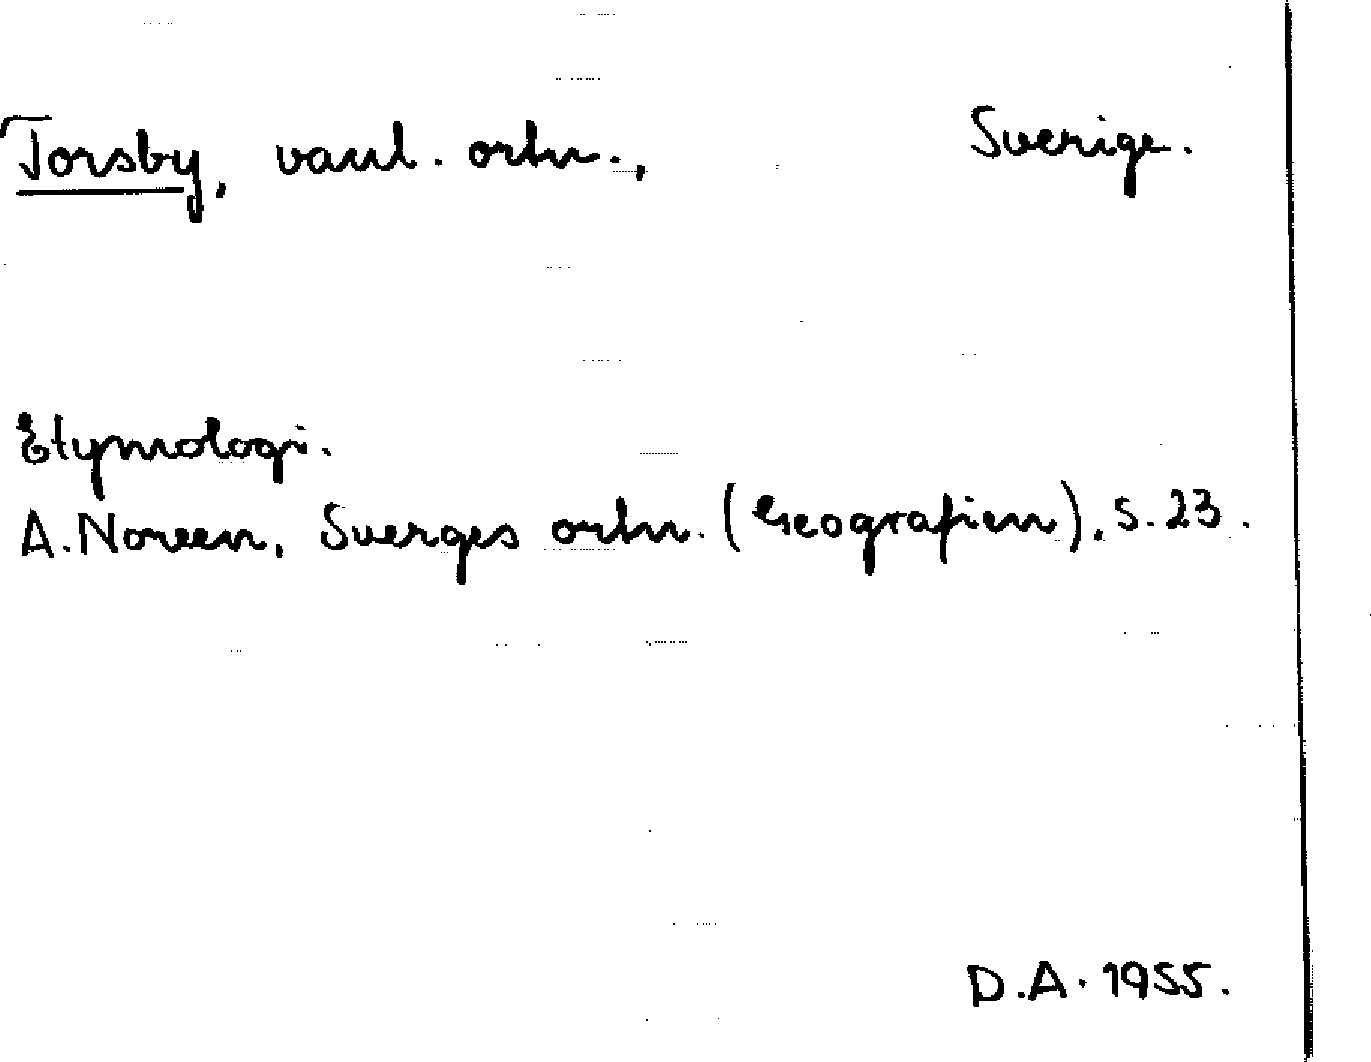 Torsby, vanl. ortn., Sverige.
Etymologi.
A. Noreen, Sverges ortn. (Geografien), s. 23.
D.A. 1955.